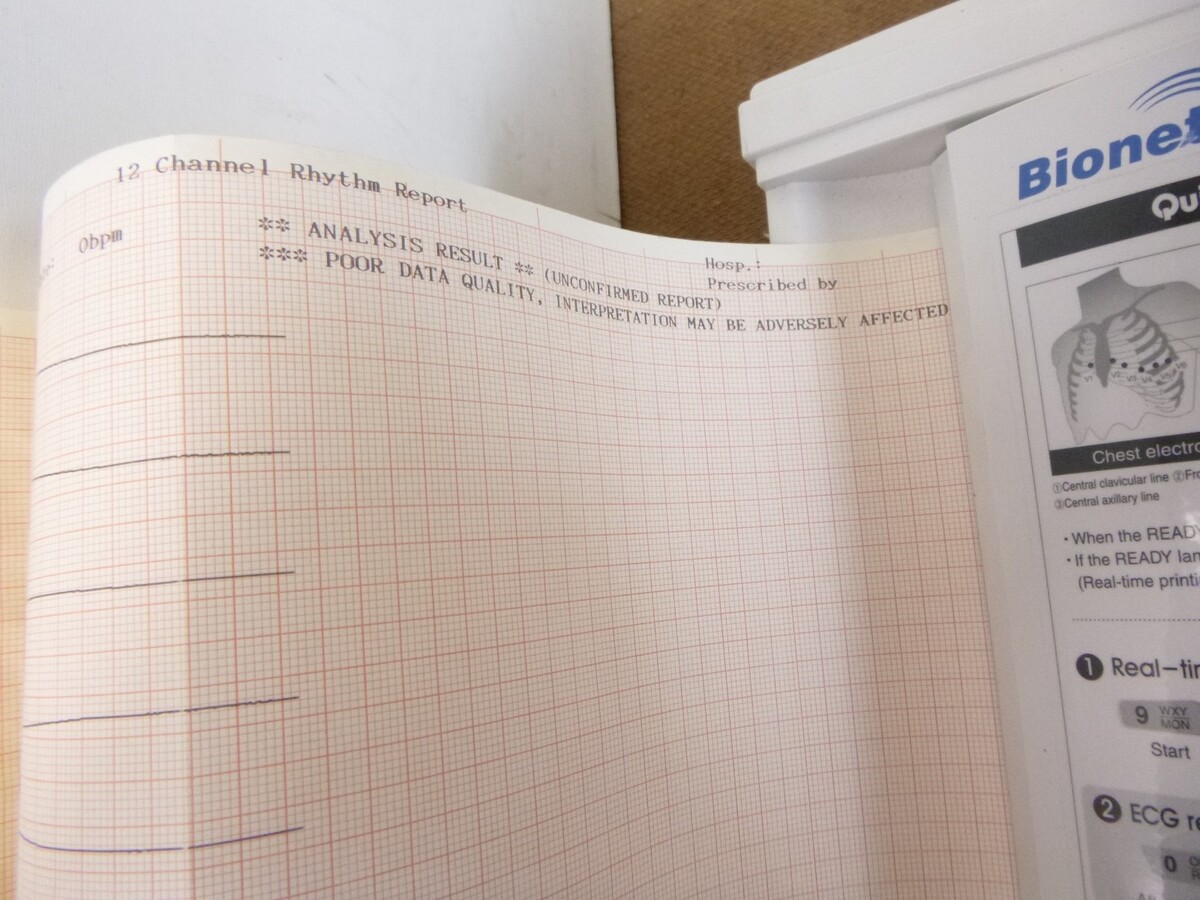 12 Channel Rhythm Report
0bpm
** ANALYSIS RESULT ** (UNCONFIRMED REPORT)
*** POOR DATA QUALITY, INTERPRETATION MAY BE ADVERSELY AFFECTED
Hosp.:
Prescribed by
Bionet
Qui
V1 V2 V3 V4 V5 V6
Chest electro
①Central clavicular line ②Fro
③Central axillary line
• When the READY
• If the READY lam
(Real-time printi
❶ Real-tim
9 WXY
MON
Start
❷ ECG re
0